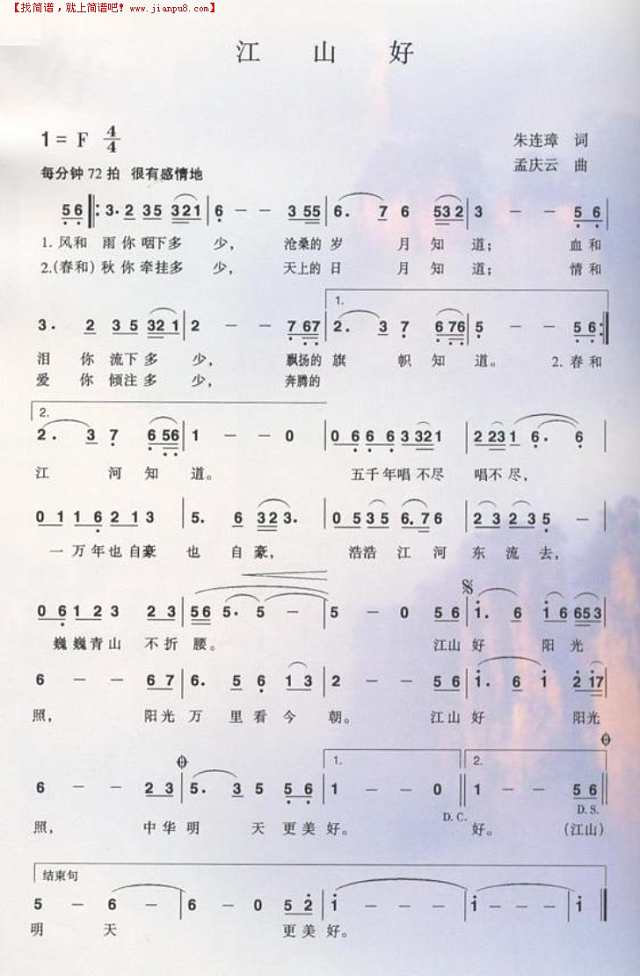 【找简谱，就上简谱吧! www.jianpu8.com】
江 山 好
1 = F 4/4
朱连璋 词
每分钟 72 拍 很有感情地
孟庆云 曲
5 6 ‖: 3· 2 35 321 | 6 - - 3 55 | 6· 7 6 532 | 3 - - 5 6 |
1. 风和 雨你 咽下多 少， 沧桑的 岁 月 知 道； 血和
2.(春和) 秋你 牵挂多 少， 天上的 日 月 知 道； 情和
1.
3· 2 3 5 32 1 | 2 - - 7 67 | 2· 3 7 6 76 | 5 - - 5 6 :‖
泪 你 流下多 少， 飘扬的 旗 帜 知 道。 2. 春 和
爱 你 倾注多 少， 奔腾的
2.
2· 3 7 6 56 | 1 - - 0 | 0 6 6 6 3 321 | 2 231 6· 6 |
江 河 知 道。 五千年唱 不尽 唱不尽，
0 1 1 1 6 2 1 3 | 5· 6 32 3· | 0 5 3 5 6·7 6 | 3 2 3 2 3 5 - |
一 万 年也 自豪 也 自 豪， 浩浩 江 河 东 流 去，
0 6 1 2 3 2 3 | 56 5· 5 - | 5 - 0 5 6 | 1· 6 1 6 653 |
巍巍青山 不 折 腰。 江山 好 阳 光
6 - - 6 7 | 6· 3 5 6 1 3 | 2 - - 5 6 | 1· 6 1 2 17 |
照， 阳光 万 里 看 今 朝。 江山 好 阳光
1. 2.
6 - - 2 3 | 5· 3 5 5 6 | 1 - - 0 ‖ 1 - - 5 6 ‖
D. C. D. S.
照， 中华 明 天 更 美 好。 好。 (江山)
结束句
5 - 6 - | 6 - 0 5 2 | 1 - - - | 1 - - 1 ‖
明 天 更美 好。